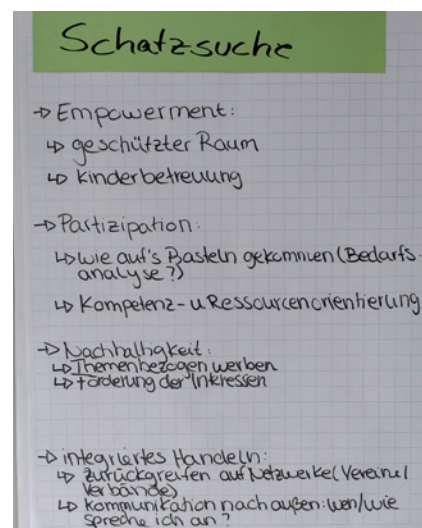 Schatzsuche
→ Empowerment:
↳ geschützter Raum
↳ Kinderbetreuung
→ Partizipation:
↳ Wie auf's Basteln gekommen (Bedarfs-
analyse?)
↳ Kompetenz- u. Ressourcenorientierung
→ Nachhaltigkeit:
↳ Themenbezogen werben
↳ Förderung der Interessen
→ integriertes Handeln:
↳ zurückgreifen auf Netzwerke (Vereine/
Verbände)
↳ Kommunikation nach außen: wen/wie
spreche ich an?